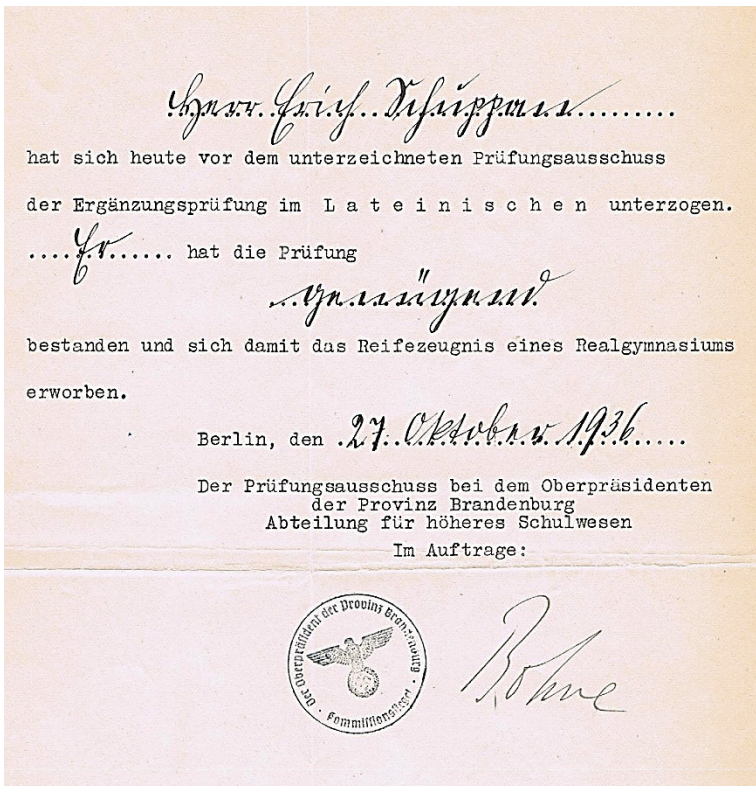 Herr Erich Schuppan
hat sich heute vor dem unterzeichneten Prüfungsausschuss
der Ergänzungsprüfung im L a t e i n i s c h e n unterzogen.
....Er...... hat die Prüfung
genügend
bestanden und sich damit das Reifezeugnis eines Realgymnasiums
erworben.
Berlin, den 27. Oktober 1936
Der Prüfungsausschuss bei dem Oberpräsidenten
der Provinz Brandenburg
Abteilung für höheres Schulwesen
Im Auftrage:
Der Oberpräsident der Provinz Brandenburg
Kommissionssiegel
Bohne